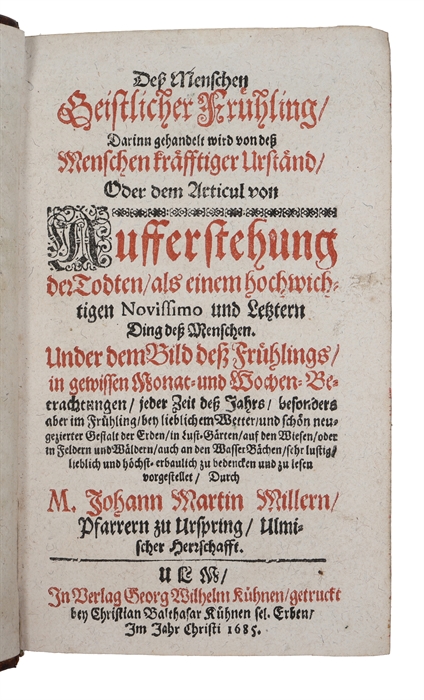 Deß Menschen
Geistlicher Frühling/
Darinn gehandelt wird von deß
Menschen kräfftiger Urständ/
Oder dem Articul von
Aufferstehung
der Todten/als einem hochwich-
tigen Novissimo und Letztern
Ding deß Menschen.
Under dem Bild deß Frühlings/
in gewissen Monat- und Wochen-Be-
trachtungen/ jeder Zeit deß Jahrs/ besonders
aber im Frühling/bey lieblichem Wetter/und schön neu-
gezierter Gestalt der Erden/in Lust-Gärten/auf den Wiesen/oder
in Feldern und Wäldern/auch an den Wasser Bächen/sehr lustig/
lieblich und höchst-erbaulich zu bedencken und zu lesen
vorgestellet/ Durch
M. Johann Martin Millern/
Pfarrern zu Urspring/ Ulmi-
scher Herrschafft.
ULM/
In Verlag Georg Wilhelm Kühnen/getruckt
bey Christian Balthasar Kühnen sel. Erben/
Im Jahr Christi 1685.